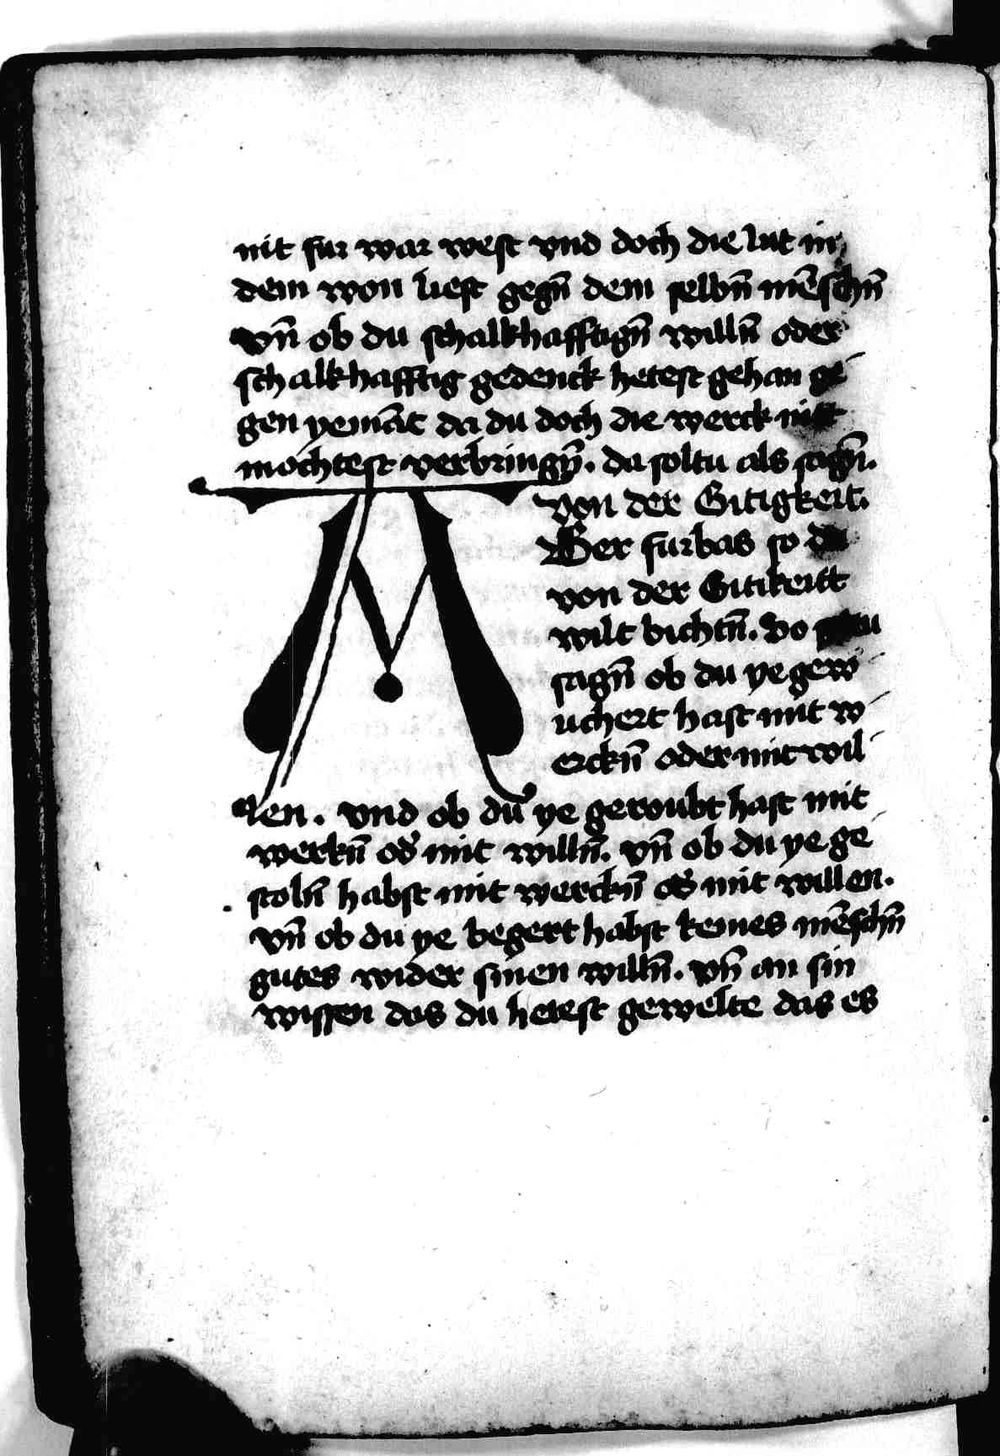 nit fur war west vnd doch die lut in
dem won liest gegñ dem selbñ mēschñ
vñ ob du schalkhafftigñ willñ oder
schalkhafftig gedenck hetest gehan ge
gen yemāt da du doch die werck nitt
mochtest verbringñ. da soltu als sagñ.
von der Gitigkeit.
ABer furbas so du
von der Gitikeitt
wilt bichtñ. So soltu
sagñ ob du ye gew
uchert hast mit w
erckñ oder mit wil
len. vnd ob du ye geroubt hast mit
werkñ od̄ mit willñ. vñ ob du ye ge
stolñ habst mit werckñ od̄ mit willen.
vñ ob du ye begert habst keines mēschñ
gutes wider sinen willñ. vñ an sin
wissen das du hetest gewelte das es